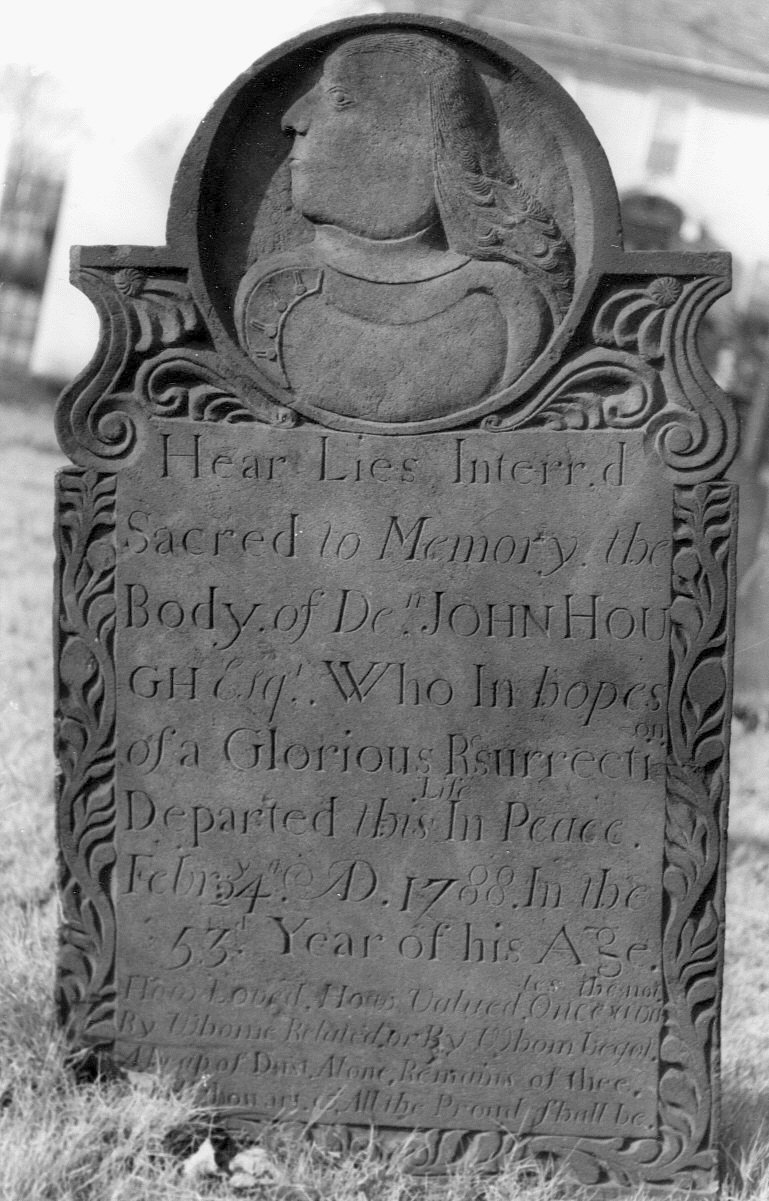 Hear Lies Interr.d
Sacred to Memory. the
Body. of Deⁿ. JOHN HOU
GH Esqʳ. Who In hopes
of a Glorious Rsurrecti
on
Life
Departed this In Peace.
Febry 4. AD. 1788. In the
53ᵈ. Year of his Age.
tes thenot
How Loved, How Valued, Once
By Whome Related, or By Whom begot,
A heap of Dust, Alone, Remains of thee.
Thou art, & All the Proud shall be.